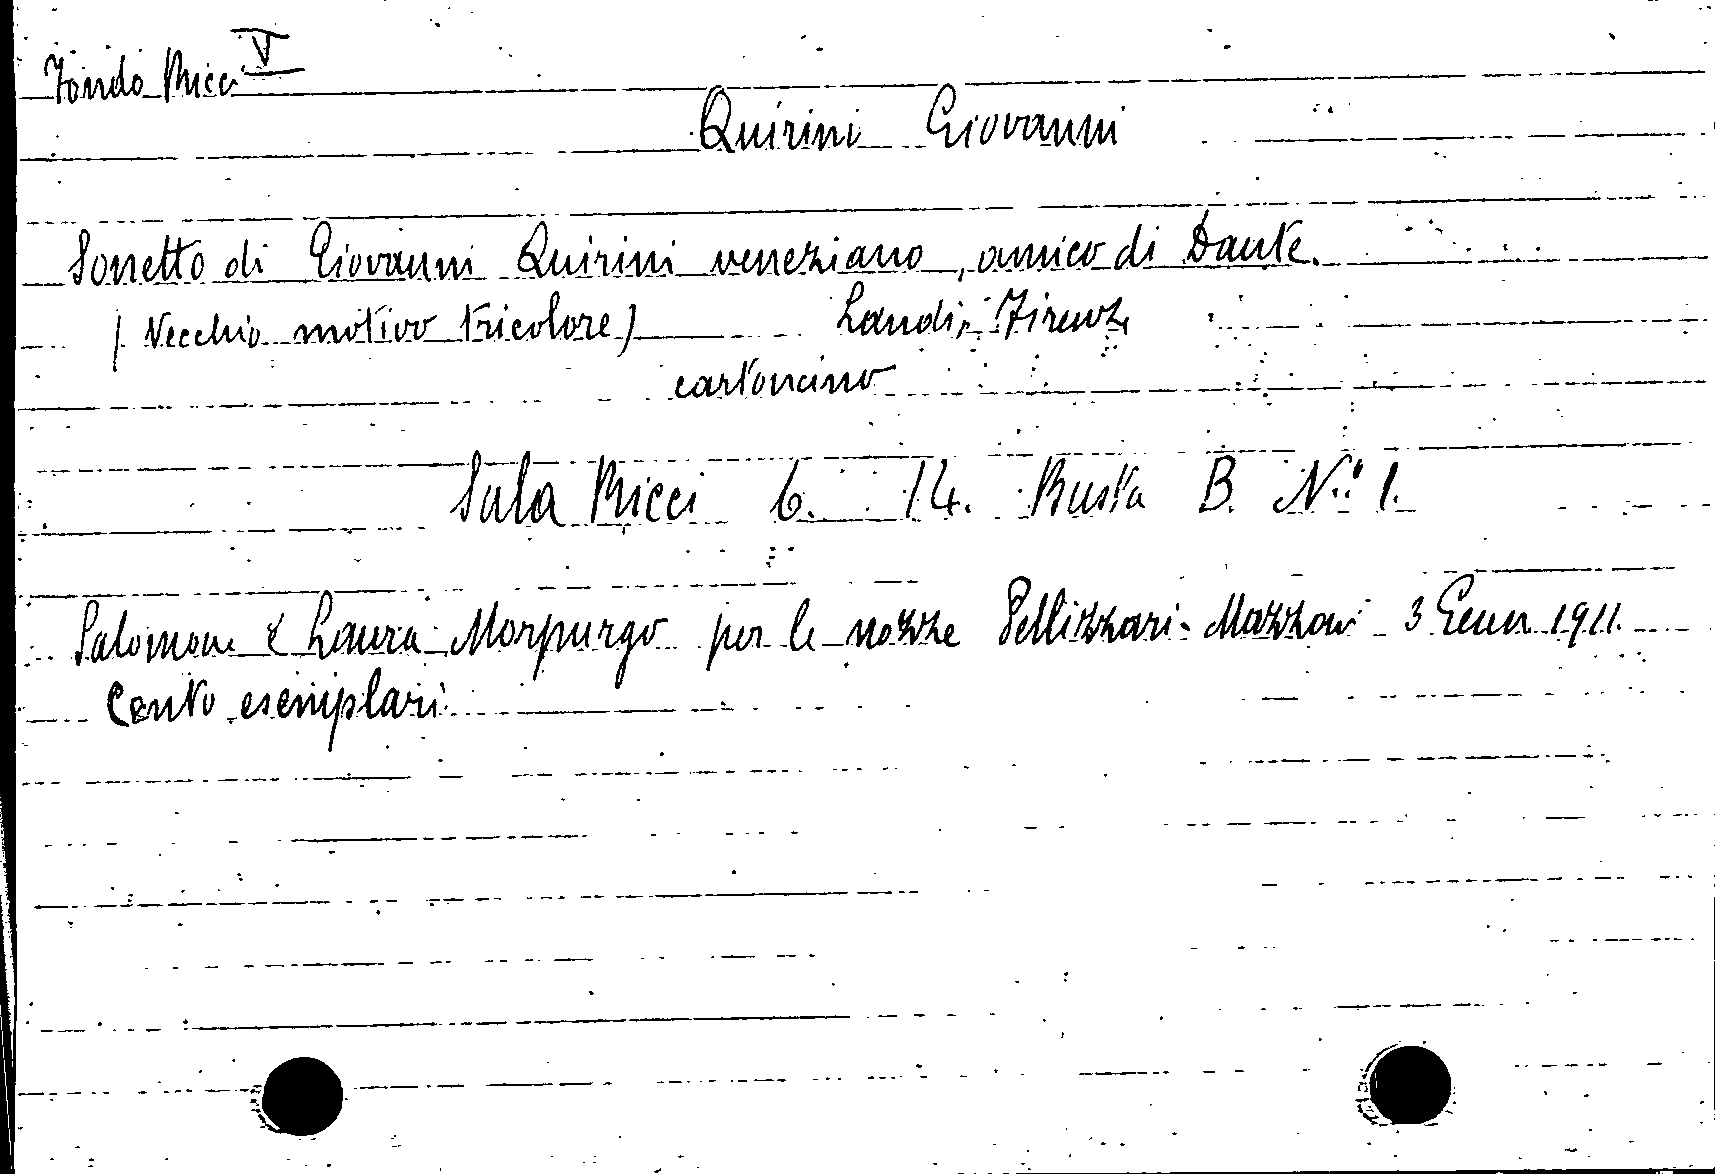 Fondo Ricci V
Quirini Giovanni
Sonetto di Giovanni Quirini veneziano, amico di Dante.
(Vecchio motivo tricolore) Landi, Firenze
cartoncino
Sala Ricci 6. 14. Busta B. N.° 1.
Salomone e Laura Morpurgo per le nozze Pellizzari-Mazzoni 3 Genn 1911.
Cento esemplari